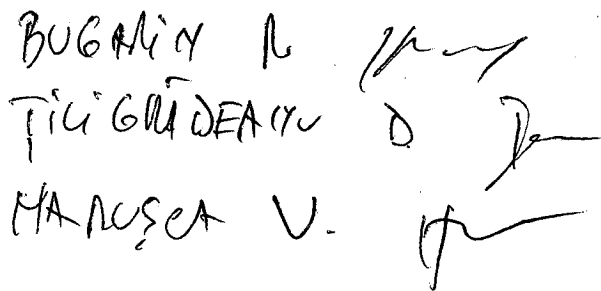 BUGAIIN R
ȚILIGRĂDEANU D.
MARUȘCA V.